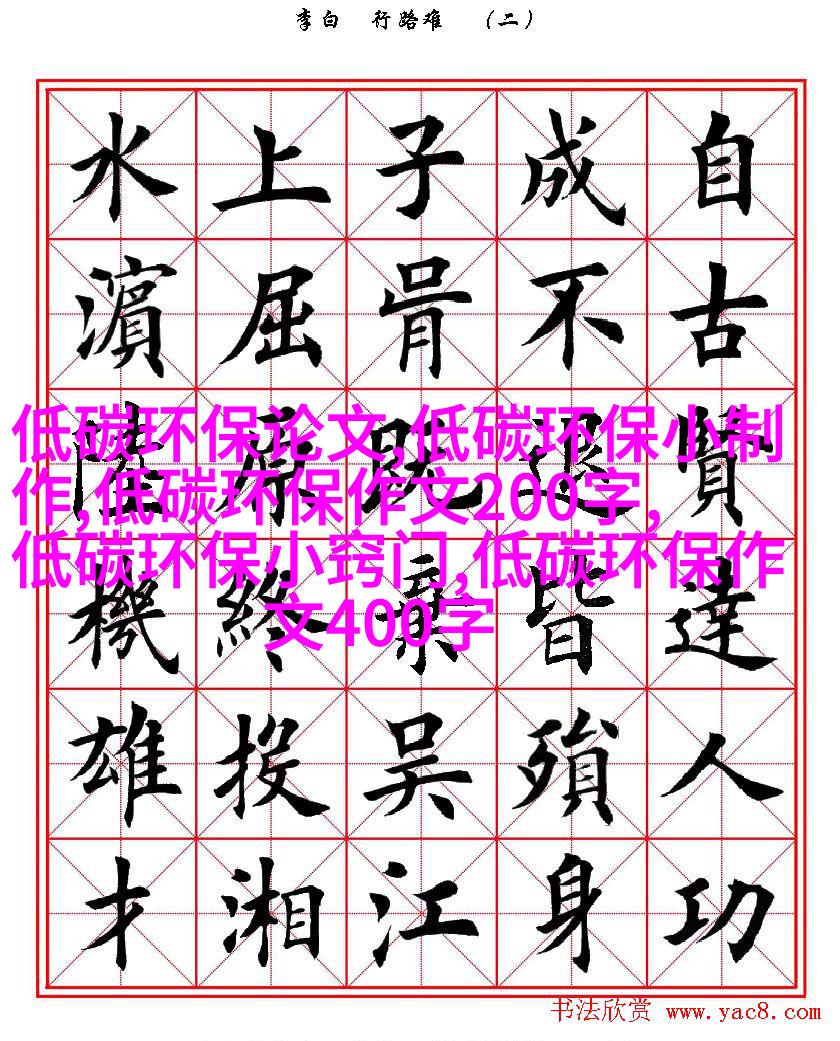 李白 行路难 （二）
自古賢達人功
成不退皆殞身
子胥既棄吴江
上屈原終投湘
水濱陸機雄才
低碳环保论文,低碳环保小制
作,低碳环保作文200字,
低碳环保小窍门,低碳环保作
文400字
书法欣赏 www.yac8.com